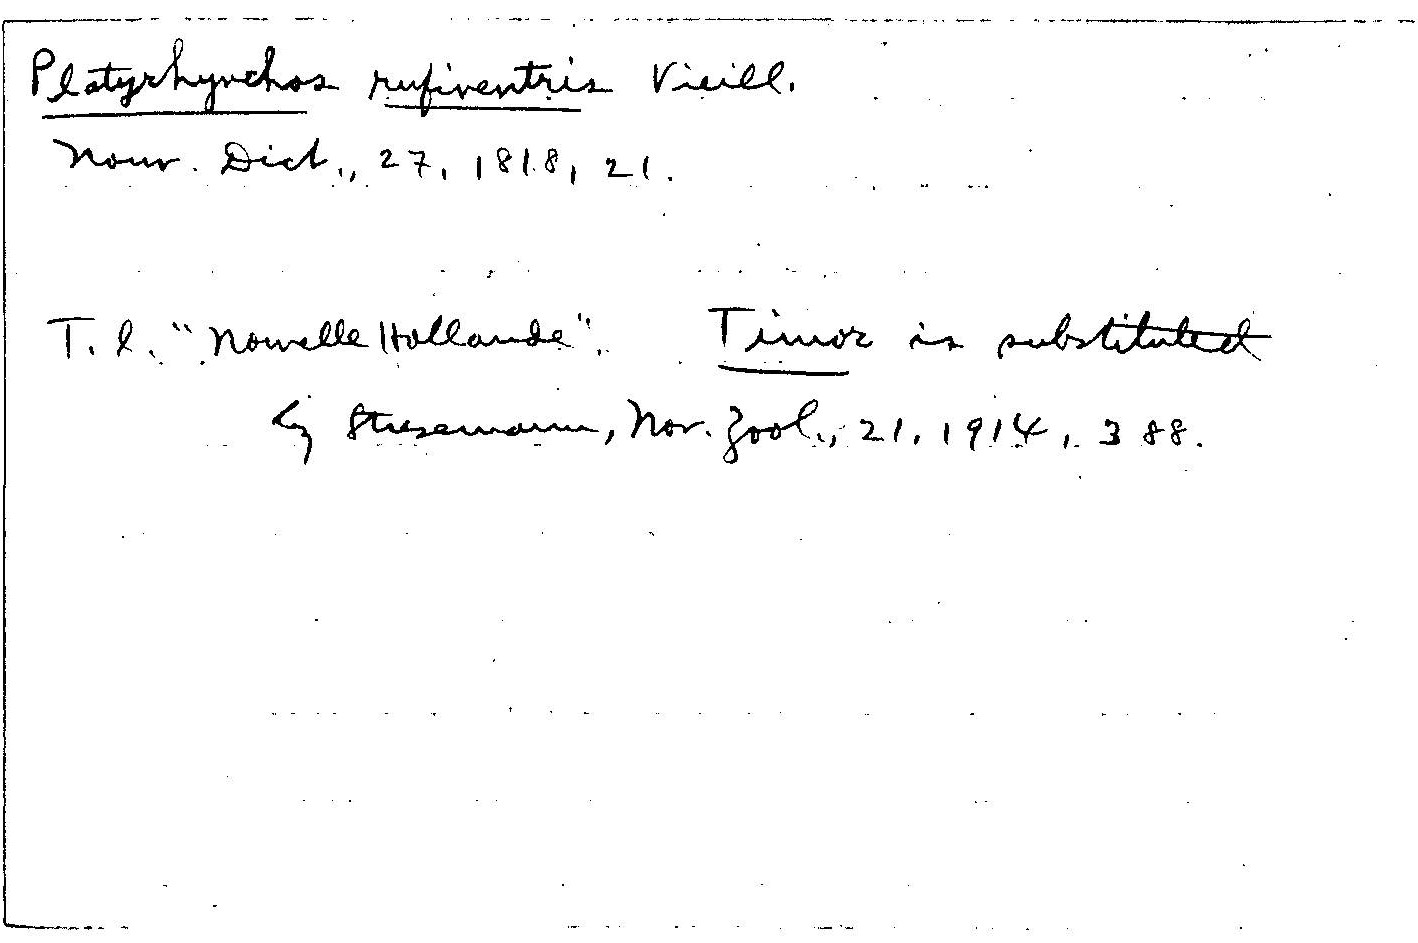 Platyrhynchos rufiventris Vieill.
Nouv. Dict., 27, 1818, 21.
T. l. "Nouvelle Hollande". Timor is substituted
by Stresemann, Nov. Zool., 21, 1914, 388.